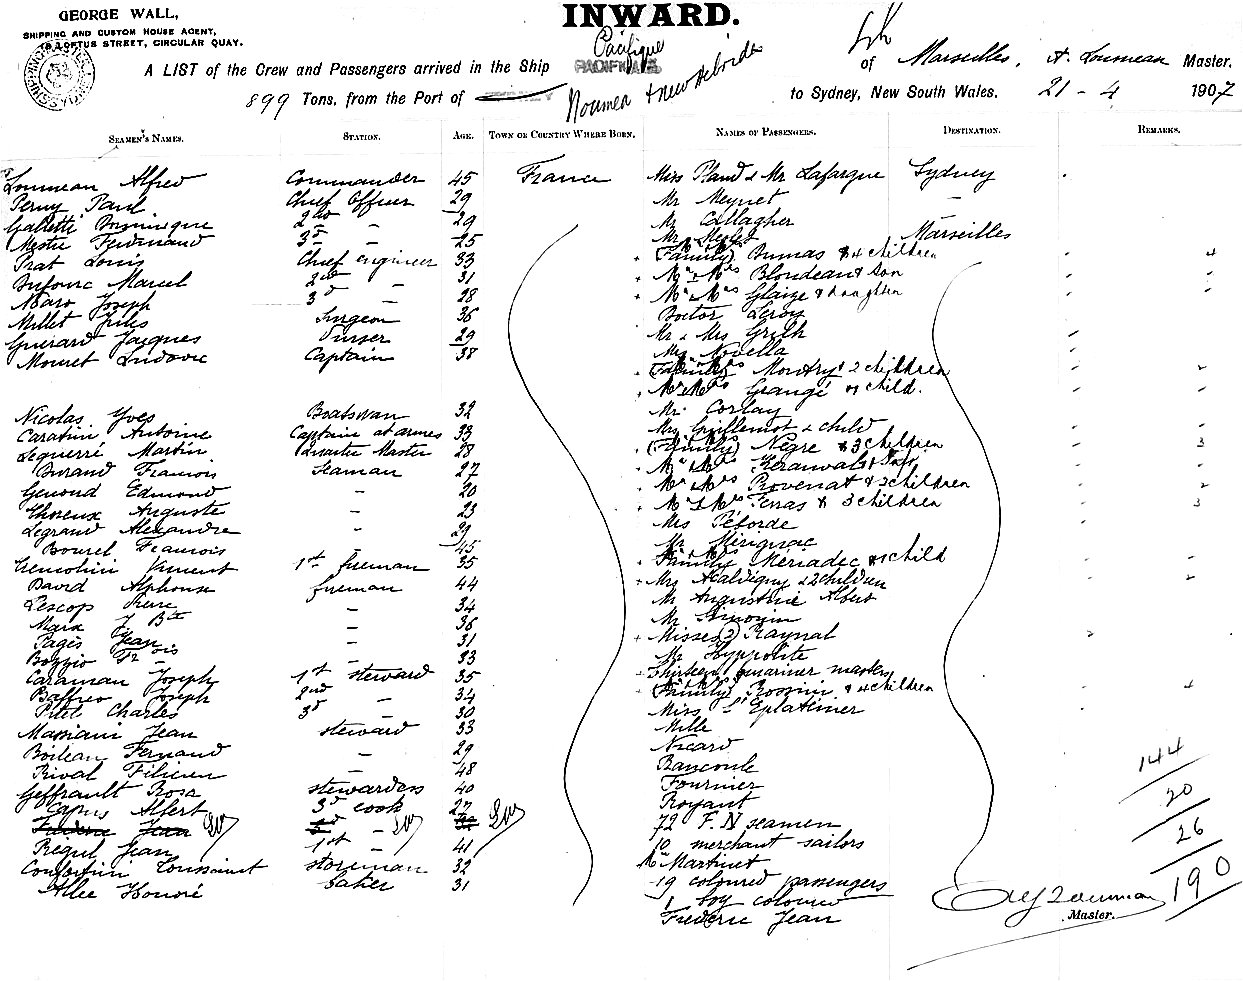 GEORGE WALL,
SHIPPING AND CUSTOM HOUSE AGENT,
LOFTUS STREET, CIRCULAR QUAY.
INWARD.
A LIST of the Crew and Passengers arrived in the Ship Pacifique PACIFIQUE of Marseilles, A. Loumeau Master.
899 Tons, from the Port of Noumea & New Hebrides to Sydney, New South Wales. 21 - 4 1907
SEAMEN'S NAMES. STATION. AGE. TOWN OR COUNTRY WHERE BORN. NAMES OF PASSENGERS. DESTINATION. REMARKS.
Loumeau Alfred Commander 45 France Miss & Mr Lafargue Sydney
Perny Paul Chief Officer 29 Mr Meynet -
Galletti Dominique 2nd - 29 Mr Gallagher
Mestre Ferdinand 3d - 25 Mr Marseilles
Prat Louis Chief engineer 33 (Family) Dumas & 4 children 4
Marcel 2nd - 31 Mr & Mrs Blondeau & son
Joseph 3d - 28 Mr & Mrs Glaize & daughter
Millet Jules Surgeon 36 Doctor Leroy
Guerard Jacques Purser 29 Mr & Mrs
Mouret Ludovic Captain 38 Mrs Novella
(Family) & 2 children 2
Mr Mrs Grangé & 1 child.
Nicolas Yves Boatswan 32 Mr Corlay
Caratini Antoine Captain at armes 33 Mrs Guillemot & child
Leguerré Martin Quarter Master 28 (Family) Nègre & 3 children 3
Durand Francois Seaman 27 Mr Mrs
Genond Edmond - 20 Mr & Mrs Provenat & 2 children 2
Auguste - 23 Mr & Mrs Ferras & 3 children 3
Legrand Alexandre - 29 Mrs Péborde
Bourel Francois - 45 Mr Mérignac
Vincent 1st fireman 35 Family Mériadec & 1 child
David Alphonse fireman 44 Mrs & 2 children 2
Lescop Pierre - 34 Mr Augustine Albert
Marx J Bte - 36 Mr
Pagès Jean - 31 Misses (2) Raynal 2
Boggio Frcois - 33 Mr Hyppolite
Caraman Joseph 1st steward 35 Thirteen masters
Baffreo Joseph 2nd - 34 (Family) Rossini & 4 children 4
Pitel Charles 3d - 30 Miss L'Eplatinier
Massiani Jean steward 33 Mille
Boileau Fernand - 29 Nicard
Rival Filicien - 48 Bancoule
Geffrault Rosa stewardess 40 Fournier
Capus Albert 3d cook 27 Royant
Frédéric Jean - 72 F. N seamen
Jean 1st - 41 10 merchant sailors
Toussaint storeman 32 Mr Martinet
Allee Honoré baker 31 19 coloured passengers
1 boy coloured
Frederic Jean
144
20
26
190
Master.